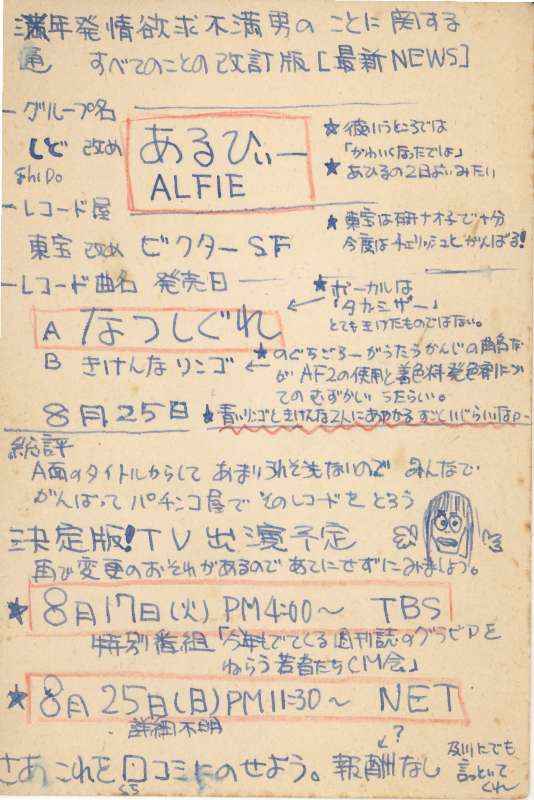 満年発情欲求不満男の ことに関する
すべてのことの改訂版［最新NEWS］
ーグループ名
しど 改め
ShiDo
あるひぃー
ALFIE
★ 彼いうところでは
「かわいくなったでしょ」
★ あひるの2日よいみたい
ーレコード屋
東宝 改め ビクターSF
★ 東宝は研ナオ子で十分
今度はチェリッシュとがんばる!
ーレコード曲名 発売日
A なつしぐれ
★ ボーカルは
「タカミザー」
とてもきけたものではない。
B きけんなリンゴ
★ のぐちごろーがうたうかんじの曲名な
が AF2の使用と着色料発色剤につい
ての むずかしい うたらしい。
8月25日
★ 青いリンゴときけんな2人にあやかる すごい
総評
A面のタイトルからして あまりうれそうもないので みんなで
がんばって パチンコ屋で そのレコードを とろう
決定版!TV出演予定
再び変更のおそれがあるので あてにせずにみましょう。
★ 8月17日(火)PM4:00〜 TBS
特別番組「今年もでてくる週刊誌のグラビアを
ねらう若者たちCM会」
★ 8月25日(日)PM11:30〜 NET
詳細不明
さあ これを 口コミにのせよう。 報酬なし
くち
?
及川にでも
言っといて
くれ〜